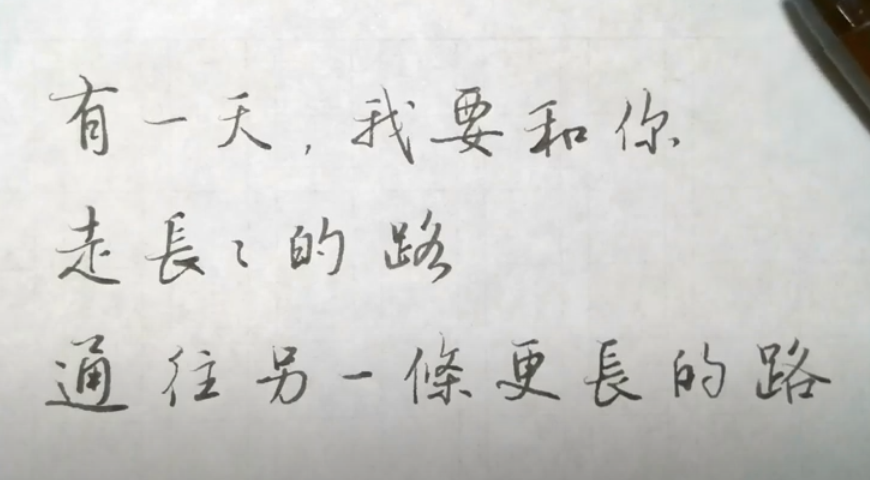 有一天，我要和你
走長〻的路
通往另一條更長的路